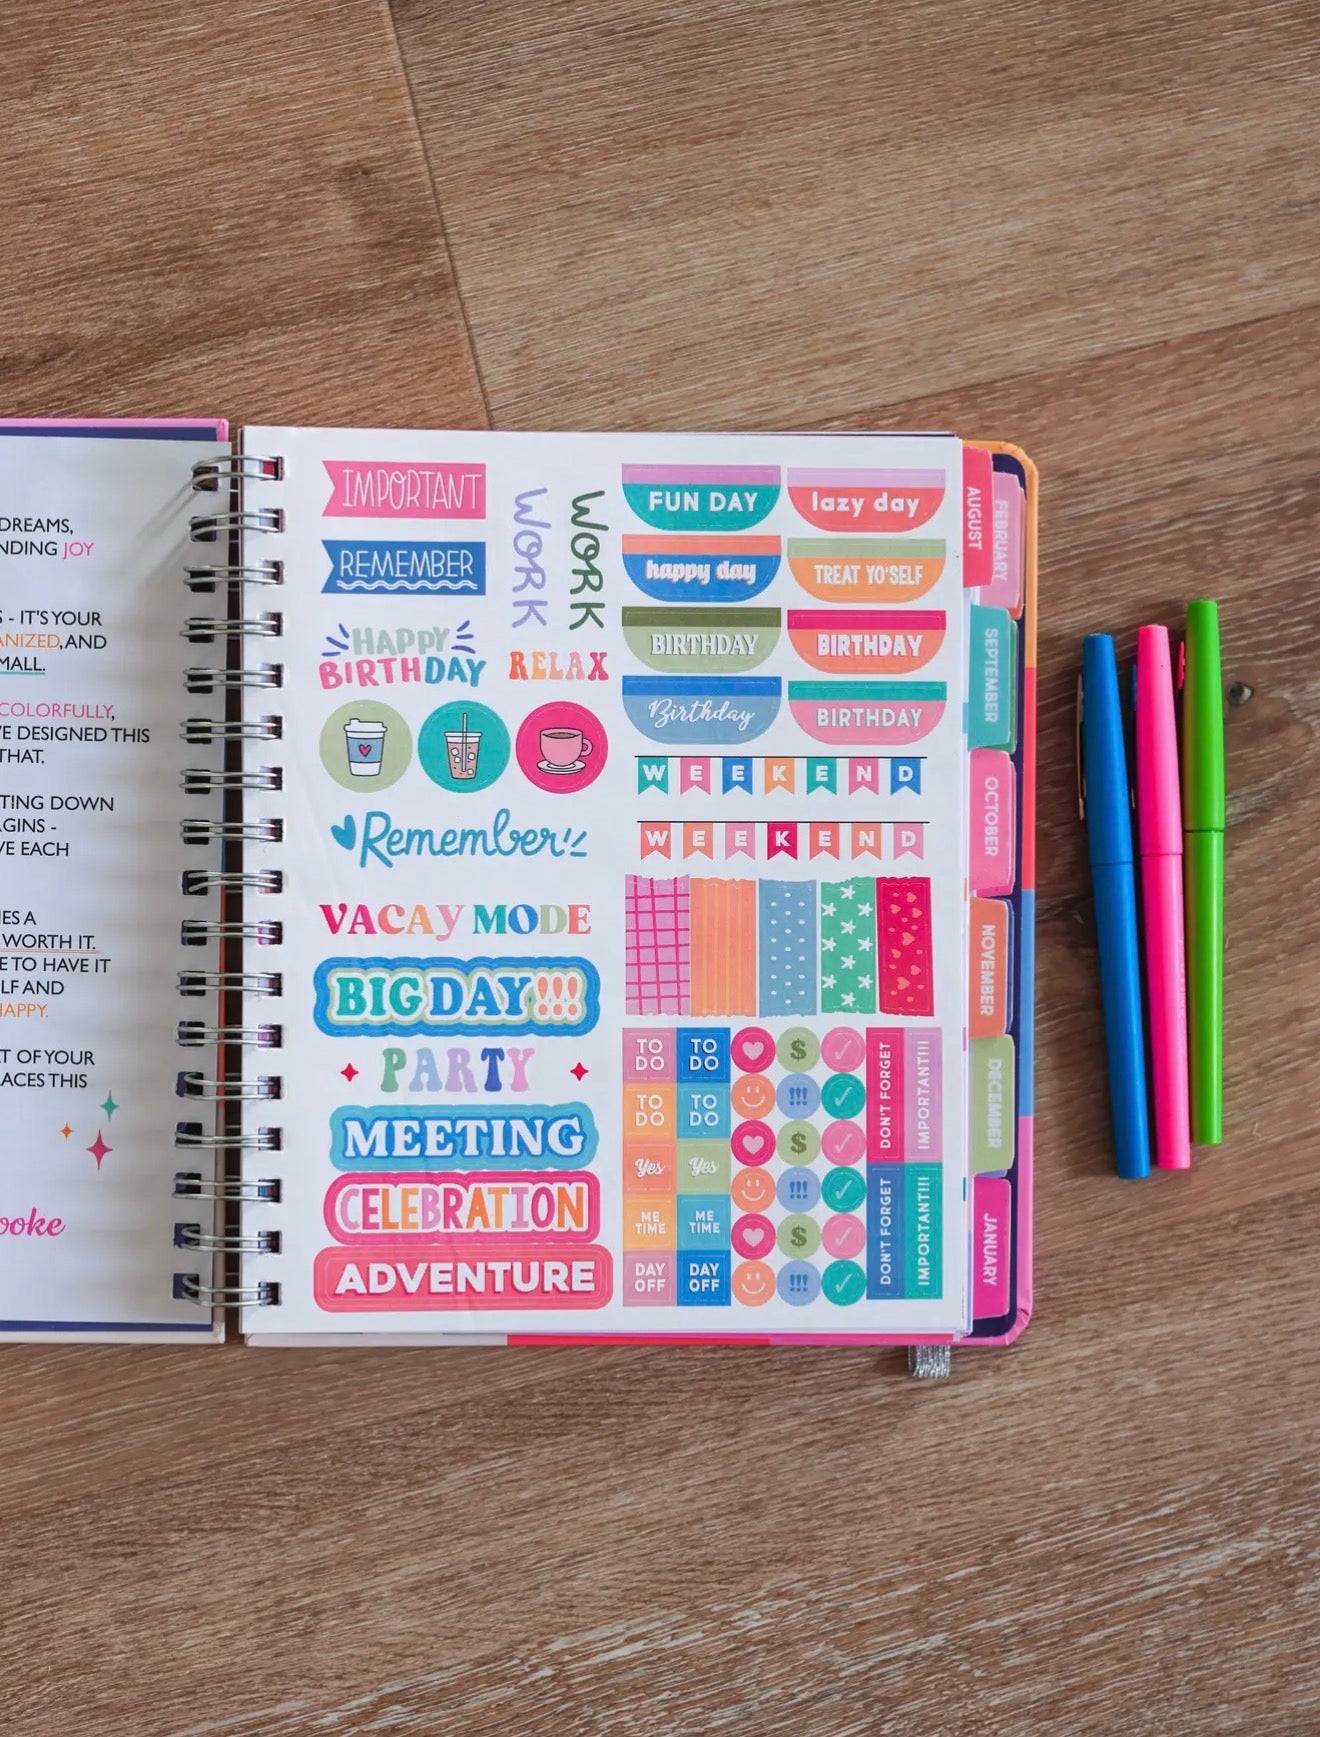 DREAMS,
NDING JOY
S - IT'S YOUR
ANIZED, AND
MALL.
COLORFULLY,
VE DESIGNED THIS
THAT.
TING DOWN
GINS -
VE EACH
ES A
WORTH IT.
E TO HAVE IT
LF AND
HAPPY.
T OF YOUR
ACES THIS
ooke
IMPORTANT
REMEMBER
WORK
WORK
HAPPY
BIRTHDAY
RELAX
Remember
VACAY MODE
BIG DAY!!!
PARTY
MEETING
CELEBRATION
ADVENTURE
FUN DAY
lazy day
happy day
TREAT YO'SELF
BIRTHDAY
BIRTHDAY
Birthday
BIRTHDAY
WEEKEND
WEEKEND
TO
DO
TO
DO
TO
DO
TO
DO
Yes
Yes
ME
TIME
ME
TIME
DAY
OFF
DAY
OFF
$
!!!
$
!!!
$
!!!
DON'T FORGET
IMPORTANT!!!
DON'T FORGET
IMPORTANT!!!
AUGUST
FEBRUARY
SEPTEMBER
OCTOBER
NOVEMBER
DECEMBER
JANUARY